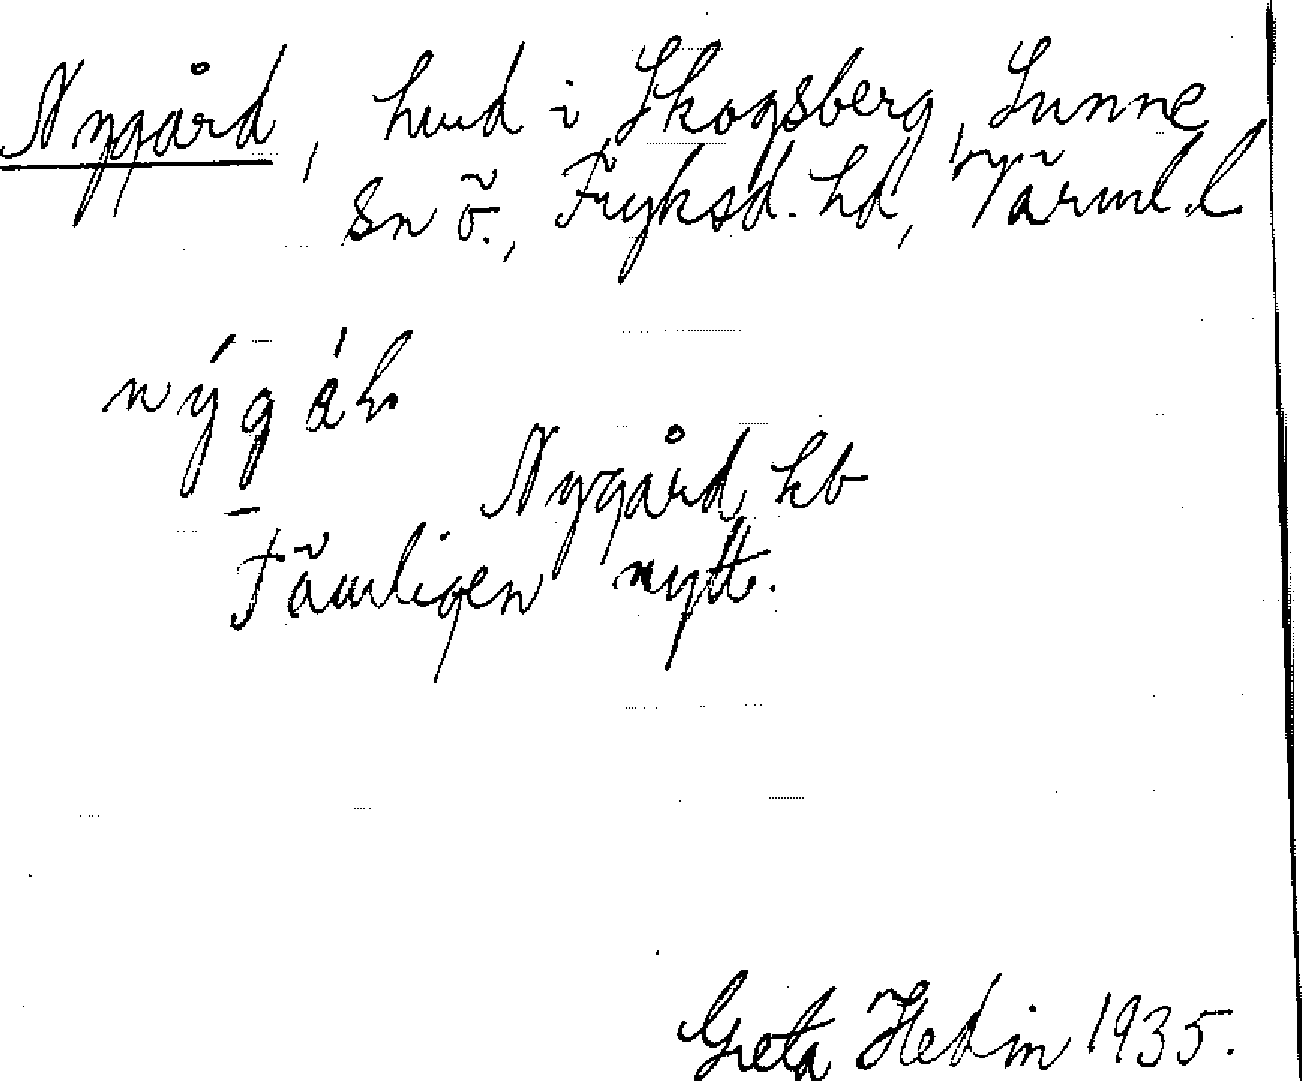 Nygård, hmd i Skogsberg, Sunne
sn ö., Fryksd. hd, Värml. l
Nygård kb
Tämligen nytt.
Greta Hedin 1935.